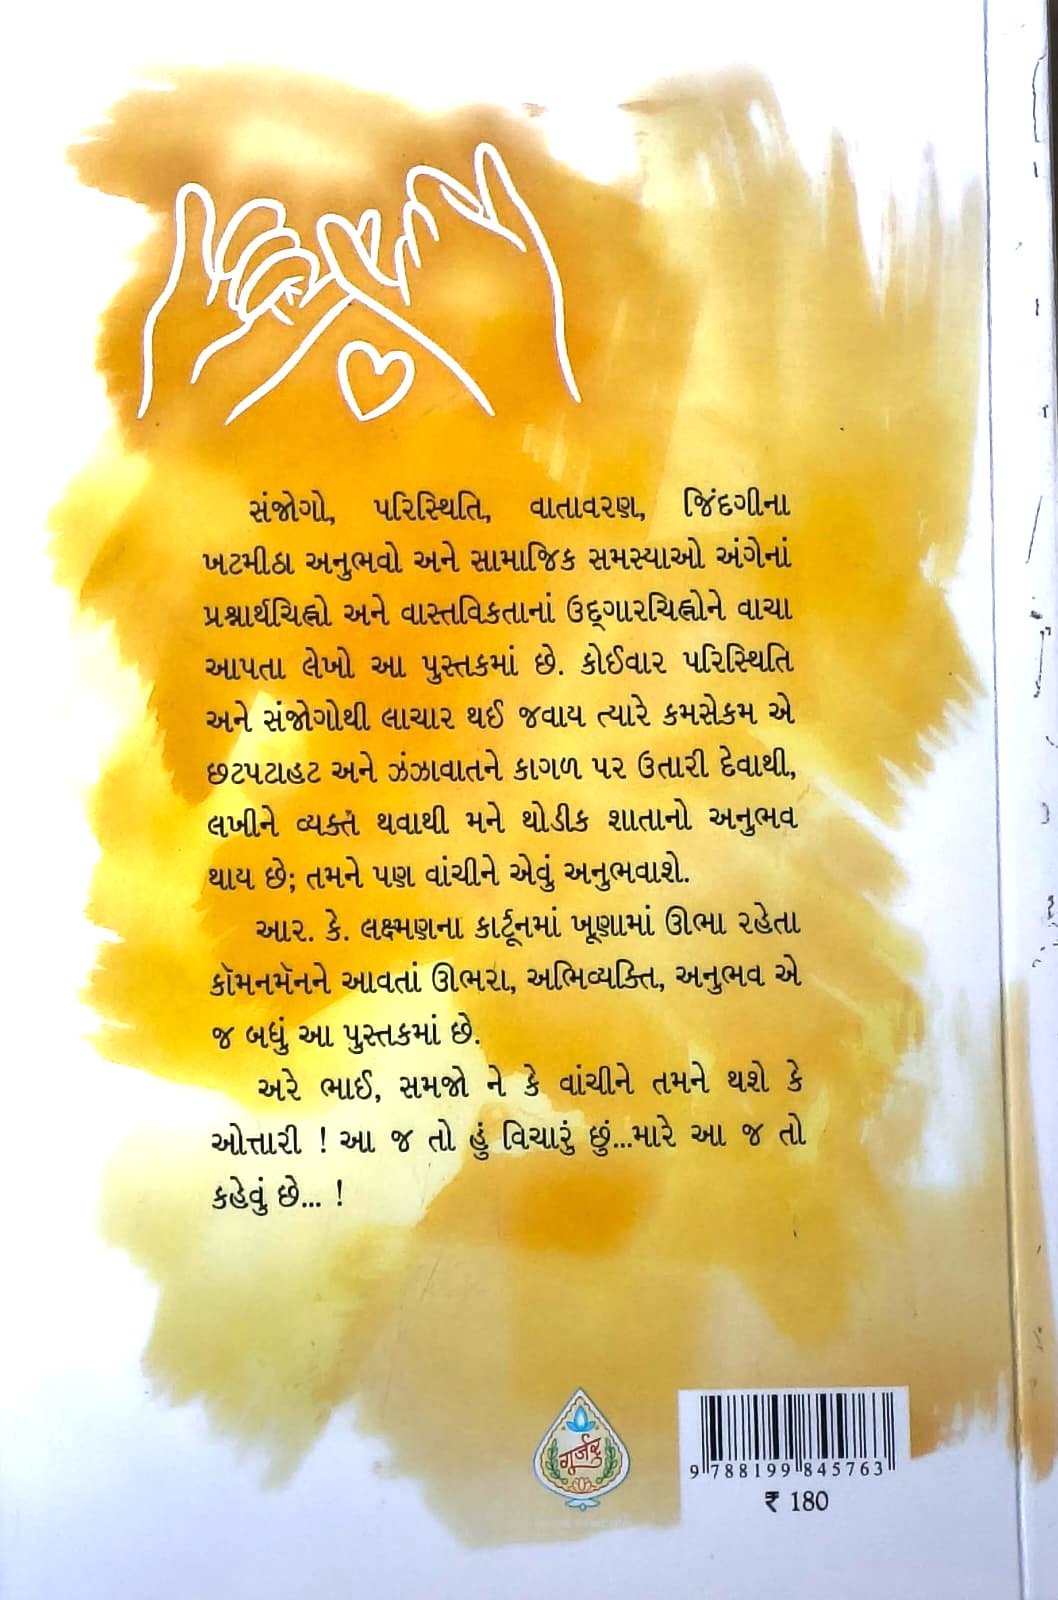 સંજોગો, પરિસ્થિતિ, વાતાવરણ, જિંદગીના
ખટમીઠા અનુભવો અને સામાજિક સમસ્યાઓ અંગેનાં
પ્રશ્નાર્થચિહ્નો અને વાસ્તવિકતાનાં ઉદ્‌ગારચિહ્નોને વાચા
આપતા લેખો આ પુસ્તકમાં છે. કોઈવાર પરિસ્થિતિ
અને સંજોગોથી લાચાર થઈ જવાય ત્યારે કમસેકમ એ
છટપટાહટ અને ઝંઝાવાતને કાગળ પર ઉતારી દેવાથી,
લખીને વ્યક્ત થવાથી મને થોડીક શાતાનો અનુભવ
થાય છે; તમને પણ વાંચીને એવું અનુભવાશે.
આર. કે. લક્ષ્મણના કાર્ટૂનમાં ખૂણામાં ઊભા રહેતા
કૉમનમૅનને આવતાં ઊભરા, અભિવ્યક્તિ, અનુભવ એ
જ બધું આ પુસ્તકમાં છે.
અરે ભાઈ, સમજો ને કે વાંચીને તમને થશે કે
ઓત્તારી ! આ જ તો હું વિચારું છું...મારે આ જ તો
કહેવું છે... !
ગૂર્જર
9 788199 845763
₹ 180